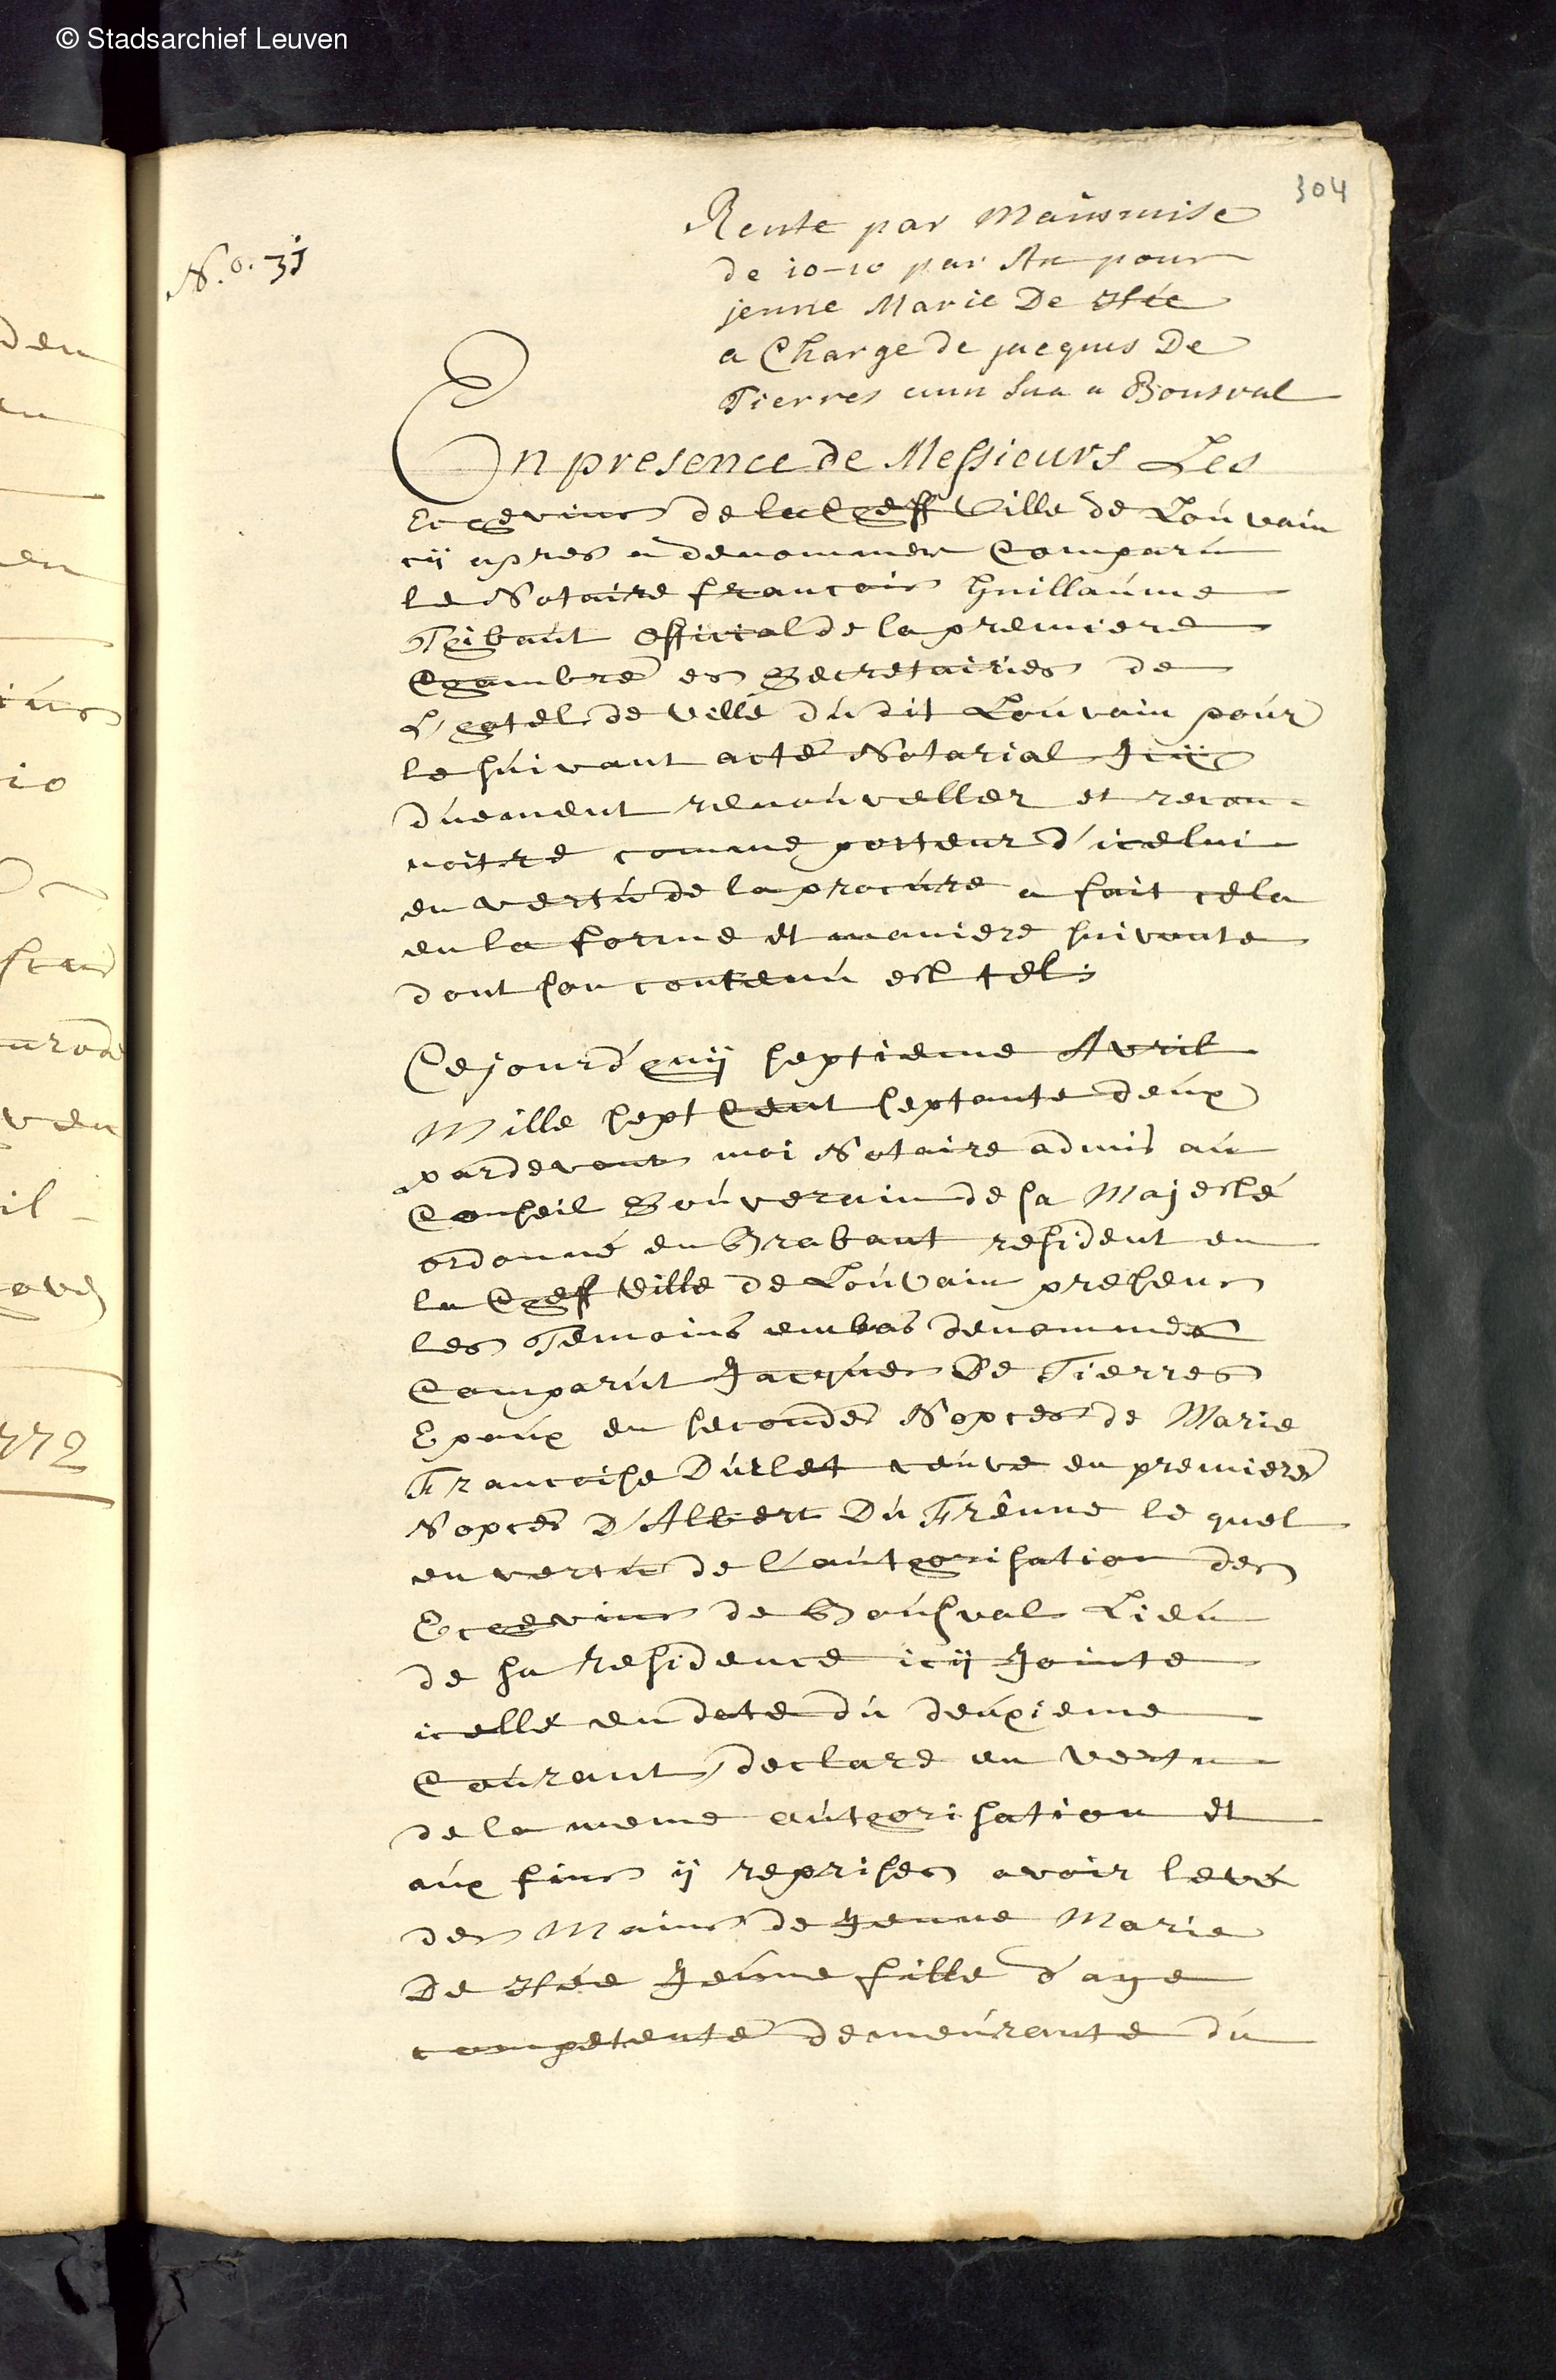 © Stadsarchief Leuven
304
N.o. 31
Rente par Mainmise
de 10-10 par An pour
jenne Marie De Hée
a Charge de jacques De
Tierres cum sua a Bousval
En presence de Messieurs Les
Echevins de la Cheff Ville de Louvain
cÿ apres a denommer Comparu
le Notaire francois Guillaume
Thibaut official de la premiere
Chambre es Secretairies de
L'hotel de Ville du dit Louvain pour
le suivant acte Notarial Icÿ
duement renouveller et recon-
noitre comme porteur d'icelui
en vertu de la procure a fait cela
en la forme et maniere suivante
dont son contenu est tel:
Cejourd'huÿ septieme Avril
Mille sept Cent septante deux
pardevant moi Notaire admis au
Conseil Souverain de sa Majesté
ordonné en Brabant resident en
la Cheff Ville de Louvain presens
les Temoins embas denommés
Comparut Jacques De Tierres
Epoux en secondes Nopces de Marie
Francoise Durlet veuve en premieres
Nopces D'Albert Du Frênne le quel
en vertu de l'authorisation des
Echevins de Bousval Lieu
de sa residence icÿ Jointe
icelle en date du deuxieme
Courant, declare en vertu
de la meme authorisation et
aux fins ÿ reprises avoir levé
des Mains de Jenne Marie
De Hée Jeune fille d'age
competente demeurante du